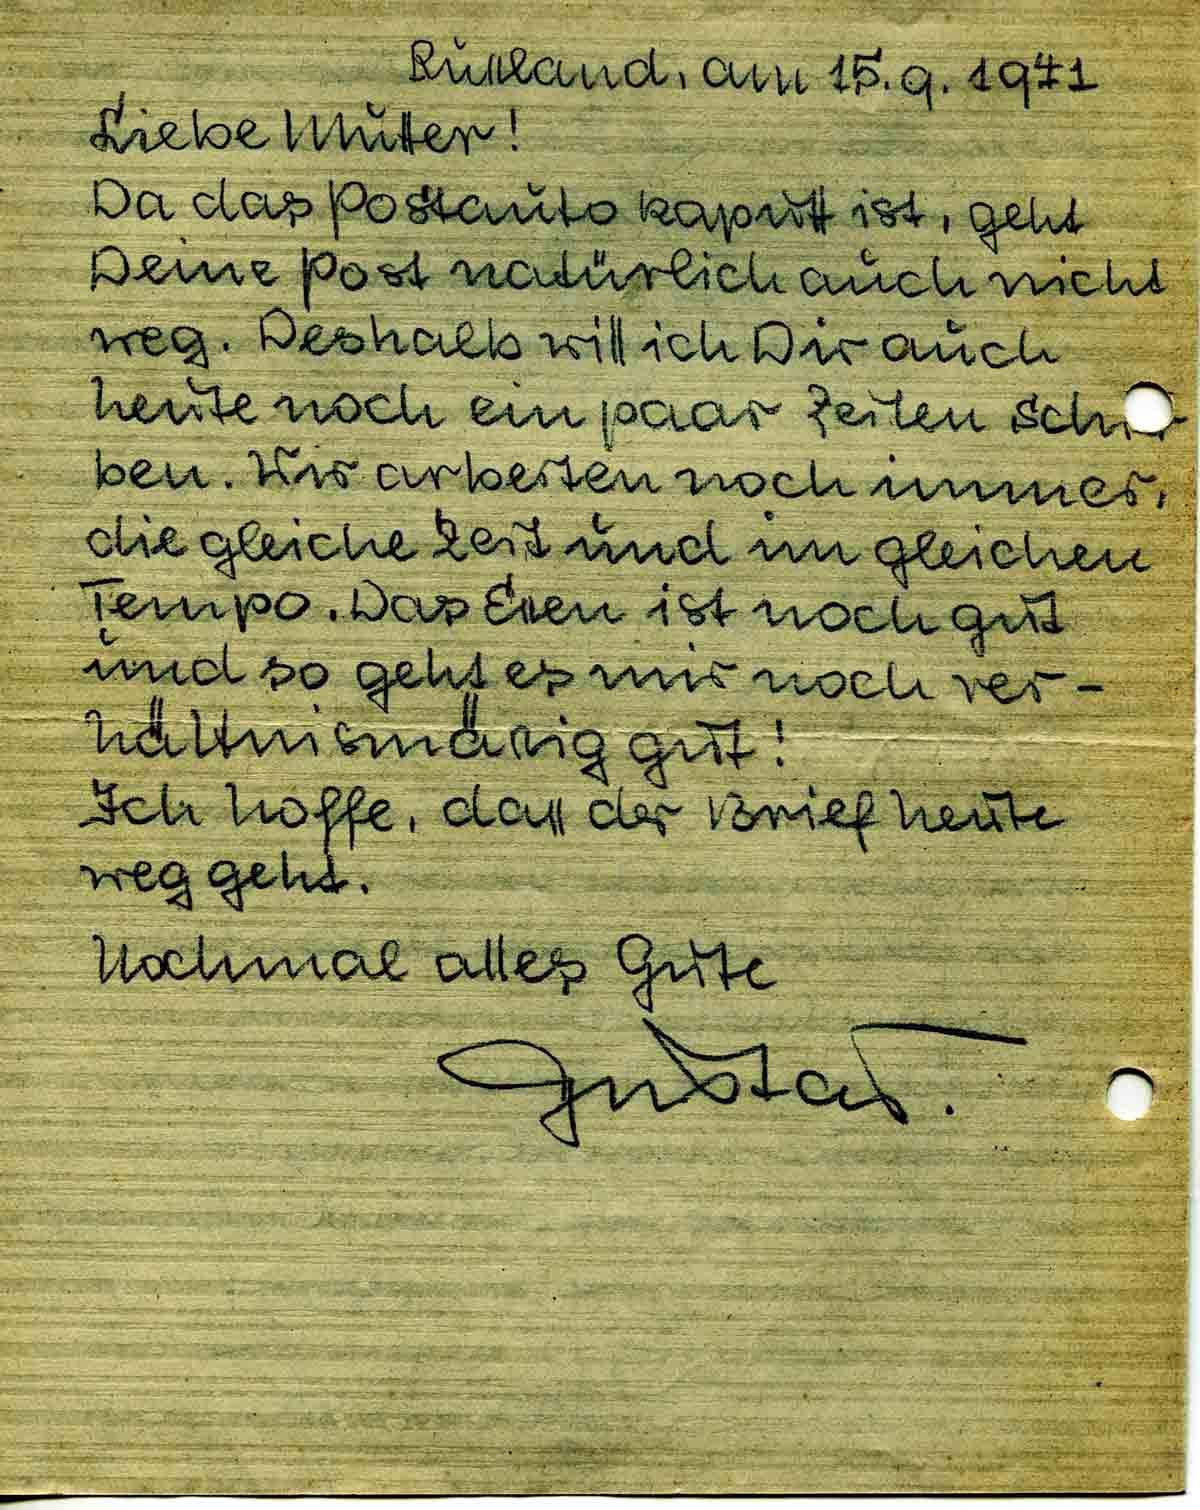 Russland, am 15.9.1941
Liebe Mutter!
Da das Postauto kaputt ist, geht
Deine Post natürlich auch nicht
weg. Deshalb will ich Dir auch
heute noch ein paar Zeilen schrei-
ben. Wir arbeiten noch immer,
die gleiche Zeit und im gleichen
Tempo. Das Essen ist noch gut
und so geht es mir noch ver-
hältnismäsig gut!
Ich hoffe, dass der Brief heute
weg geht.
Nochmal alles Gute
Gustav.